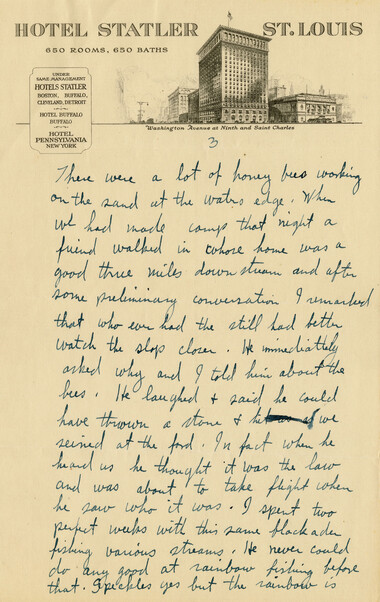 HOTEL STATLER ST. LOUIS
650 ROOMS, 650 BATHS
UNDER
SAME MANAGEMENT
HOTELS STATLER
BOSTON, BUFFALO,
CLEVELAND, DETROIT
HOTEL BUFFALO
BUFFALO
HOTEL
PENNSYLVANIA
NEW YORK
Washington Avenue at Ninth and Saint Charles
3
There were a lot of honey bees working
on the sand at the waters edge. When
we had made camp that night a
friend walked in whose home was a
good three miles down stream and after
some preliminary conversation I remarked
that who ever had the still had better
watch the slop closer. He immediately
asked why and I told him about the
bees. He laughed & said he could
have thrown a stone & hit us if we
seined at the ford. In fact when he
heard us he thought it was the law
and was about to take flight when
he saw who it was. I spent two
perfect weeks with this same blockader
fishing various streams. He never could
do any good at rainbow fishing before
that. Speckles yes but the rainbow is